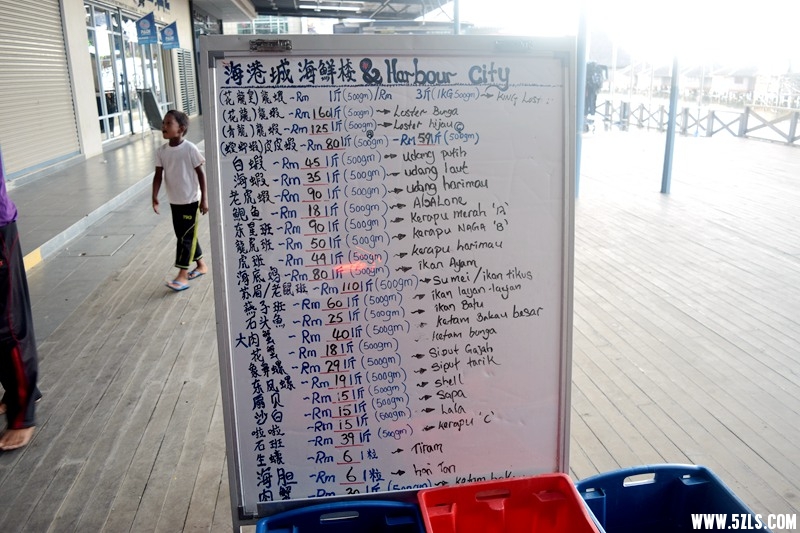 海港城海鲜楼 & Harbour City
(花龍蝦)龍蝦 -Rm 1斤(500gm)/Rm 3斤(1KG 500gm)
(花龍)龍蝦 -Rm 160 1斤(500gm) → Loster Bunga
(青龍)龍蝦 -Rm 125 1斤(500gm) → Loster hijau
(螳螂蝦)皮皮蝦 -Rm 80 1斤(500gm) -Rm 59 1斤(500gm)
白蝦 -Rm 45 1斤(500gm) → udang putih
海蝦 -Rm 35 1斤(500gm) → udang laut
老虎蝦 -Rm 90 1斤(500gm) → udang harimau
鲍魚 -Rm 18 1斤(500gm) → AbALone
东星班 -Rm 90 1斤(500gm) → Kerapu merah 'A'
龍虎班 -Rm 50 1斤(500gm) → Kerapu NAGA 'B'
虎班 -Rm 49 1斤(500gm) → kerapu harimau
海底鸡 -Rm 80 1斤(500gm) → ikan Ayam
苏眉/老鼠班 -Rm 110 1斤(500gm) → Sumei/ikan tikus
燕子班 -Rm 60 1斤(500gm) → ikan layan-layan
石头魚 -Rm 25 1斤(500gm) → ikan Batu
大肉蟹 -Rm 40 1斤(500gm) → ketam Bakau besar
花蟹 -Rm 18 1斤(500gm) → ketam bunga
象鼻螺 -Rm 29 1斤(500gm) → Siput Gajah
东风螺 -Rm 19 1斤(500gm) → siput tarik
扇贝 -Rm 15 1斤(500gm) → shell
沙白 -Rm 15 1斤(500gm) → Sapa
啦啦 -Rm 15 1斤(500gm) → Lala
石班 -Rm 39 1斤(500gm) → kerapu 'C'
生蠔 -Rm 6 1粒 → Tiram
海胆 -Rm 6 1粒
肉蟹 -Rm 1斤(500gm) → ketam
WWW.5ZLS.COM